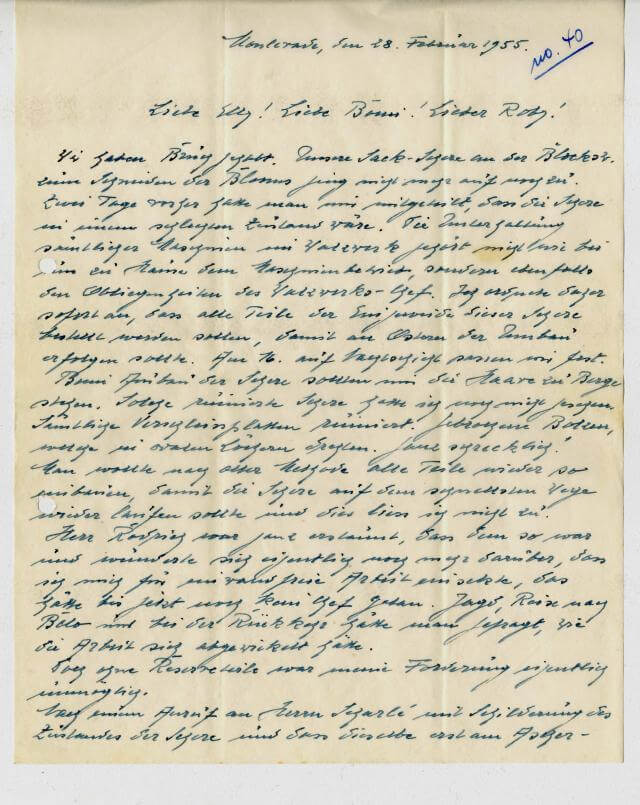 Monlevade, den 28. Februar 1955.
no. 40
Liebe Elly! Liebe Bömi! Lieber Roby!
Wir haben Bruch gehabt. Unsere Sack-Schere an der Blockstr.
zum Schneiden der Blooms ging nicht mehr auf noch zu.
Zwei Tage vorher hatte man mir mitgeteilt, dass die Schere
in einem schlechten Zustand wäre. Die Unterhaltung
sämtlicher Maschinen im Walzwerk gehört nicht wie bei
uns zu Hause dem Maschinenbetrieb, sondern ebenfalls
den Obliegenheiten des Walzwerks-Chef. Ich ordnete daher
sofort an, dass alle Teile der Eingeweide dieser Schere
bestellt werden sollten, damit an Ostern der Umbau
erfolgen sollte. Am 16. auf Nachtschicht sassen wir fest.
Beim Ausbau der Schere sollten mir die Haare zu Berge
stehen. Solche ruinierte Schere hatte ich noch nicht gesehen.
Sämtliche Verschleissplatten ruiniert. Gebrochene Bolzen,
welche in ovalen Löchern drehten. Ganz schrecklich!
Man wollte nach alter Methode alle Teile wieder so
einbauen, damit die Schere auf dem schnellsten Wege
wieder laufen sollte und dies liess ich nicht zu.
Herr war ganz erstaunt, dass dem so war
und wunderte sich eigentlich noch mehr darüber, dass
ich mich für einwandfreie Arbeit einsetzte, das
hätte bis jetzt noch kein Chef getan. Jagd, Reise nach
Belo und bei der Rückkehr hätte man gefragt, wie
die Arbeit sich abgewickelt hätte.
Doch ohne Reserveteile war meine Forderung eigentlich
unmöglich.
Nach einem Anruf an Herrn Scharlé mit Schilderung des
Zustandes der Schere und dass dieselbe erst am Ascher-